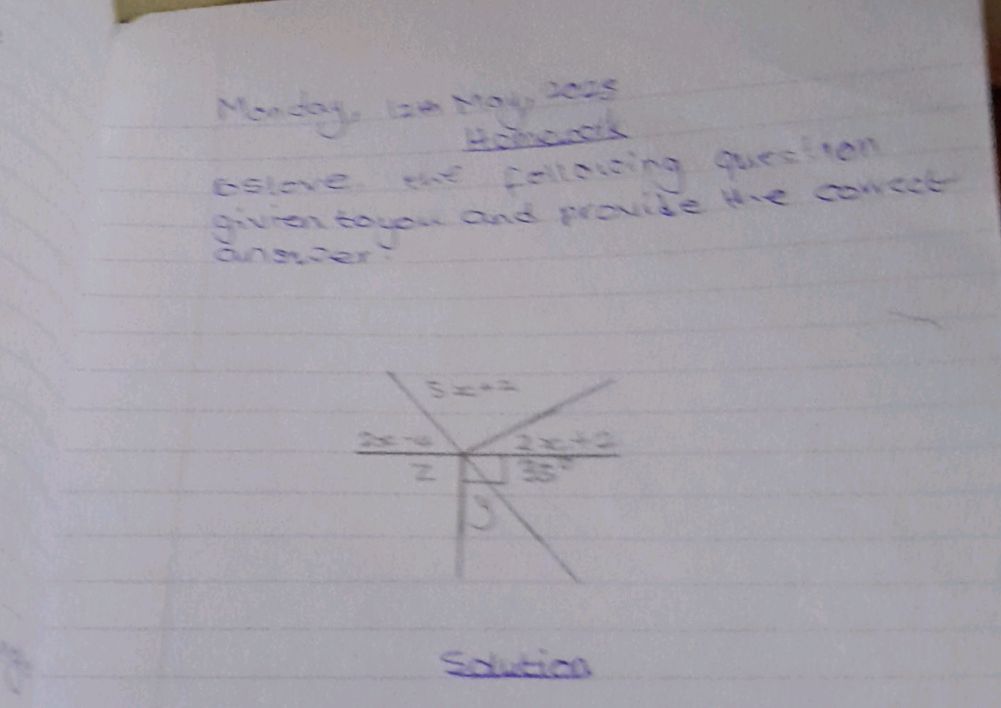 Monday, 12th May, 2025
Homework
Oslove the following question
given to you and provide the correct
answer.
5x+2
2x+2
Z
35°
y
Solution